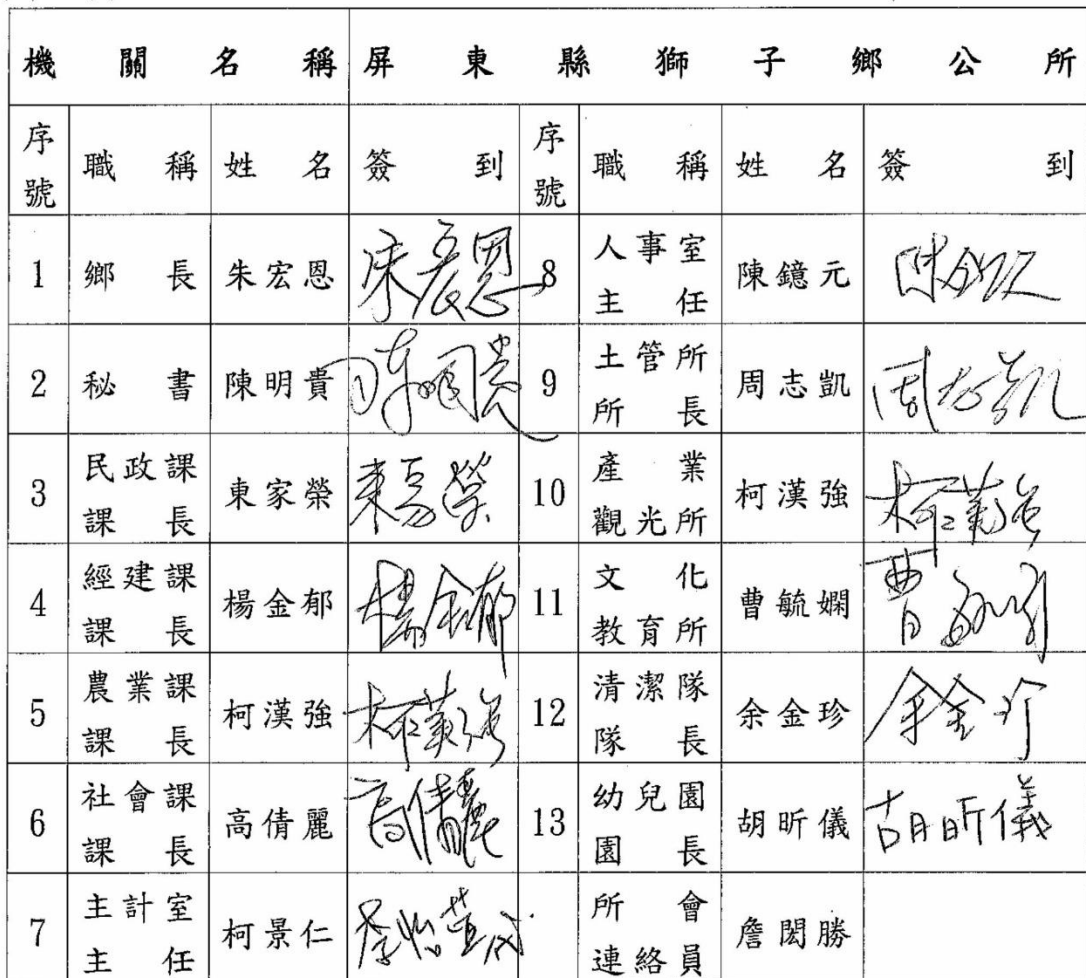 機關名稱 屏東縣獅子鄉公所
序號 職稱 姓名 簽到 序號 職稱 姓名 簽到
1 鄉長 朱宏恩 朱宏恩 8 人事室主任 陳鐿元
2 秘書 陳明貴 陳明貴 9 土管所所長 周志凱 周志凱
3 民政課課長 東家榮 東家榮 10 產業觀光所 柯漢強 柯漢強
4 經建課課長 楊金郁 楊金郁 11 文化教育所 曹毓嫻
5 農業課課長 柯漢強 柯漢強 12 清潔隊隊長 余金珍 余金珍
6 社會課課長 高倩麗 高倩麗 13 幼兒園園長 胡昕儀 胡昕儀
7 主計室主任 柯景仁 所會連絡員 詹閎勝